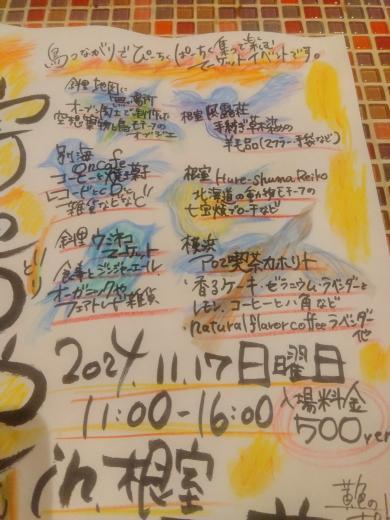 鳥つながりでぴーちくぱーちく集って楽しむ
マーケットイベントです。
釧路 地図に無い場所
オーブン陶土で制作した
空想実物と鳥モチーフの
オブジェ
根室 風露荘
手紡ぎ草木染の
羊毛品(マフラー・手袋など)
別海 OnCafe
コーヒーと焼菓子
レコードとCDと
雑貨などなど
根室 Hure-Shuma Reiko
北海道の動物モチーフの
七宝焼ブローチなど
釧路
マーケット
食事とジンジャーエール
オーガニックや
フェアトレード雑貨
横浜
アロマ喫茶カホリト
香るケーキ・ゼラニウム・ラベンダーと
レモン、コーヒーと八角など
natural flavor coffee ラベンダー
他
2024.11.17日曜日
11:00-16:00
入場料金
500yen
in 根室